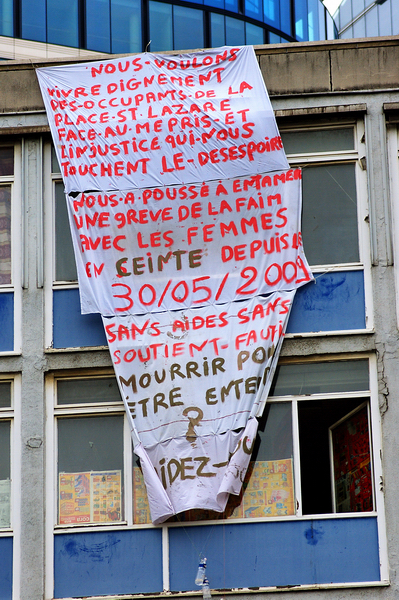 NOUS-VOULONS
VIVRE DIGNEMENT
DES-OCCUPANTS-DE LA
PLACE-ST-LAZARE
FACE-AU-MEPRIS-ET
L'INJUSTICE QUI-NOUS
TOUCHENT LE-DESESPOIR
NOUS-A-POUSSÉ À ENTAMER
UNE GREVE DE LA FAIM
AVEC LES-FEMMES
EN CEINTE DEPUIS
30/05/2009
SANS AIDES SANS
SOUTIENT-FAUT
MOURRIR
ÊTRE
?